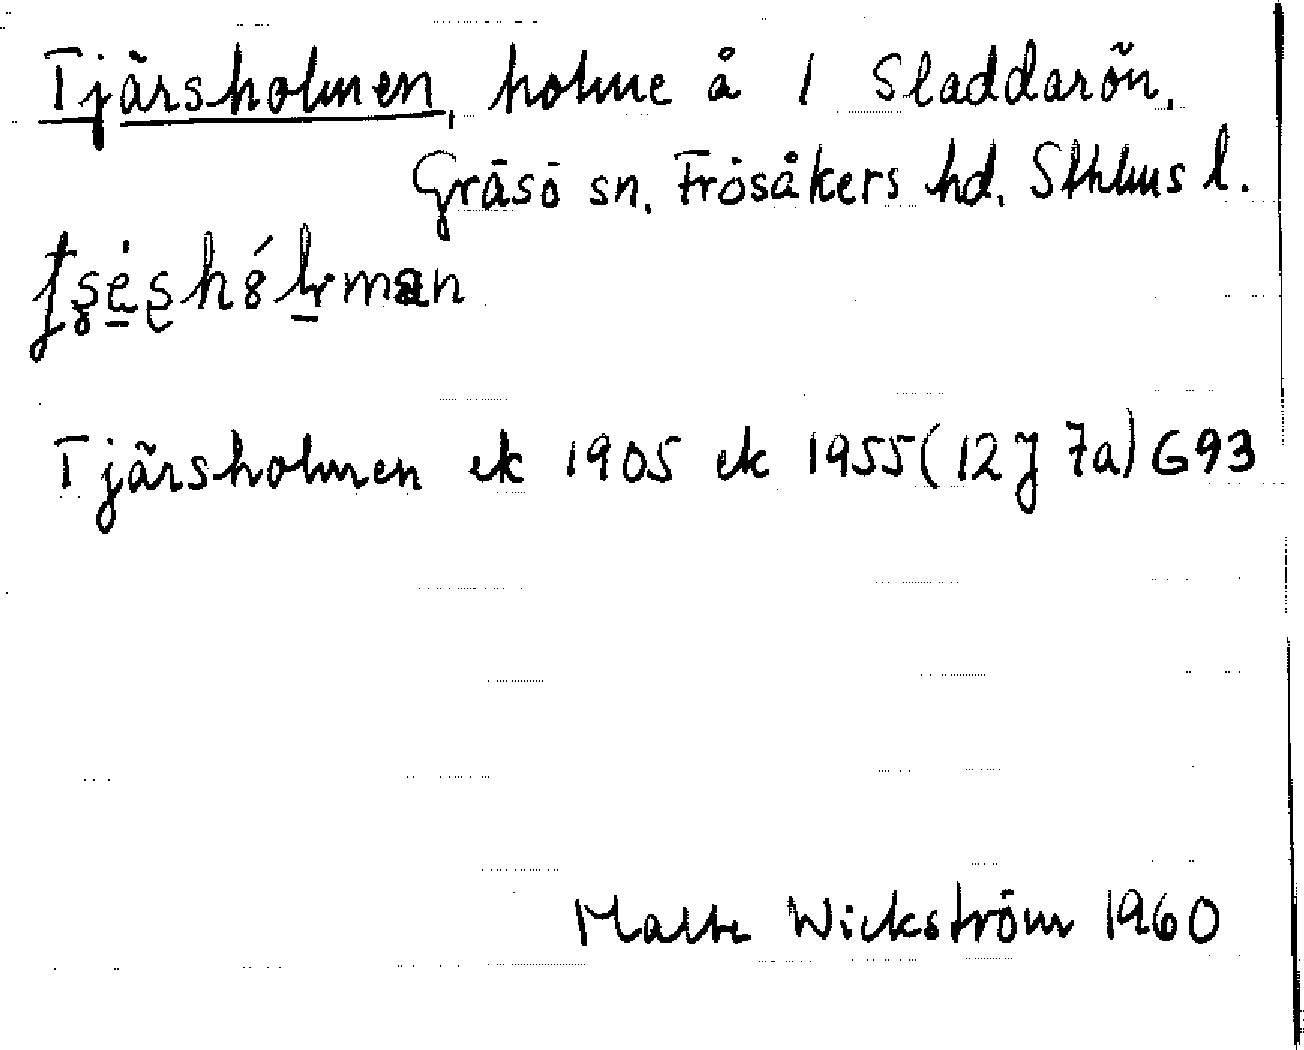 Tjärsholmen, holme å 1 Sladdarön,
Gräsö sn, Frösåkers hd, Sthlms l.
Tjärsholmen ek 1905 ek 1955 (12J 7a) G93
Malte Wickström 1960